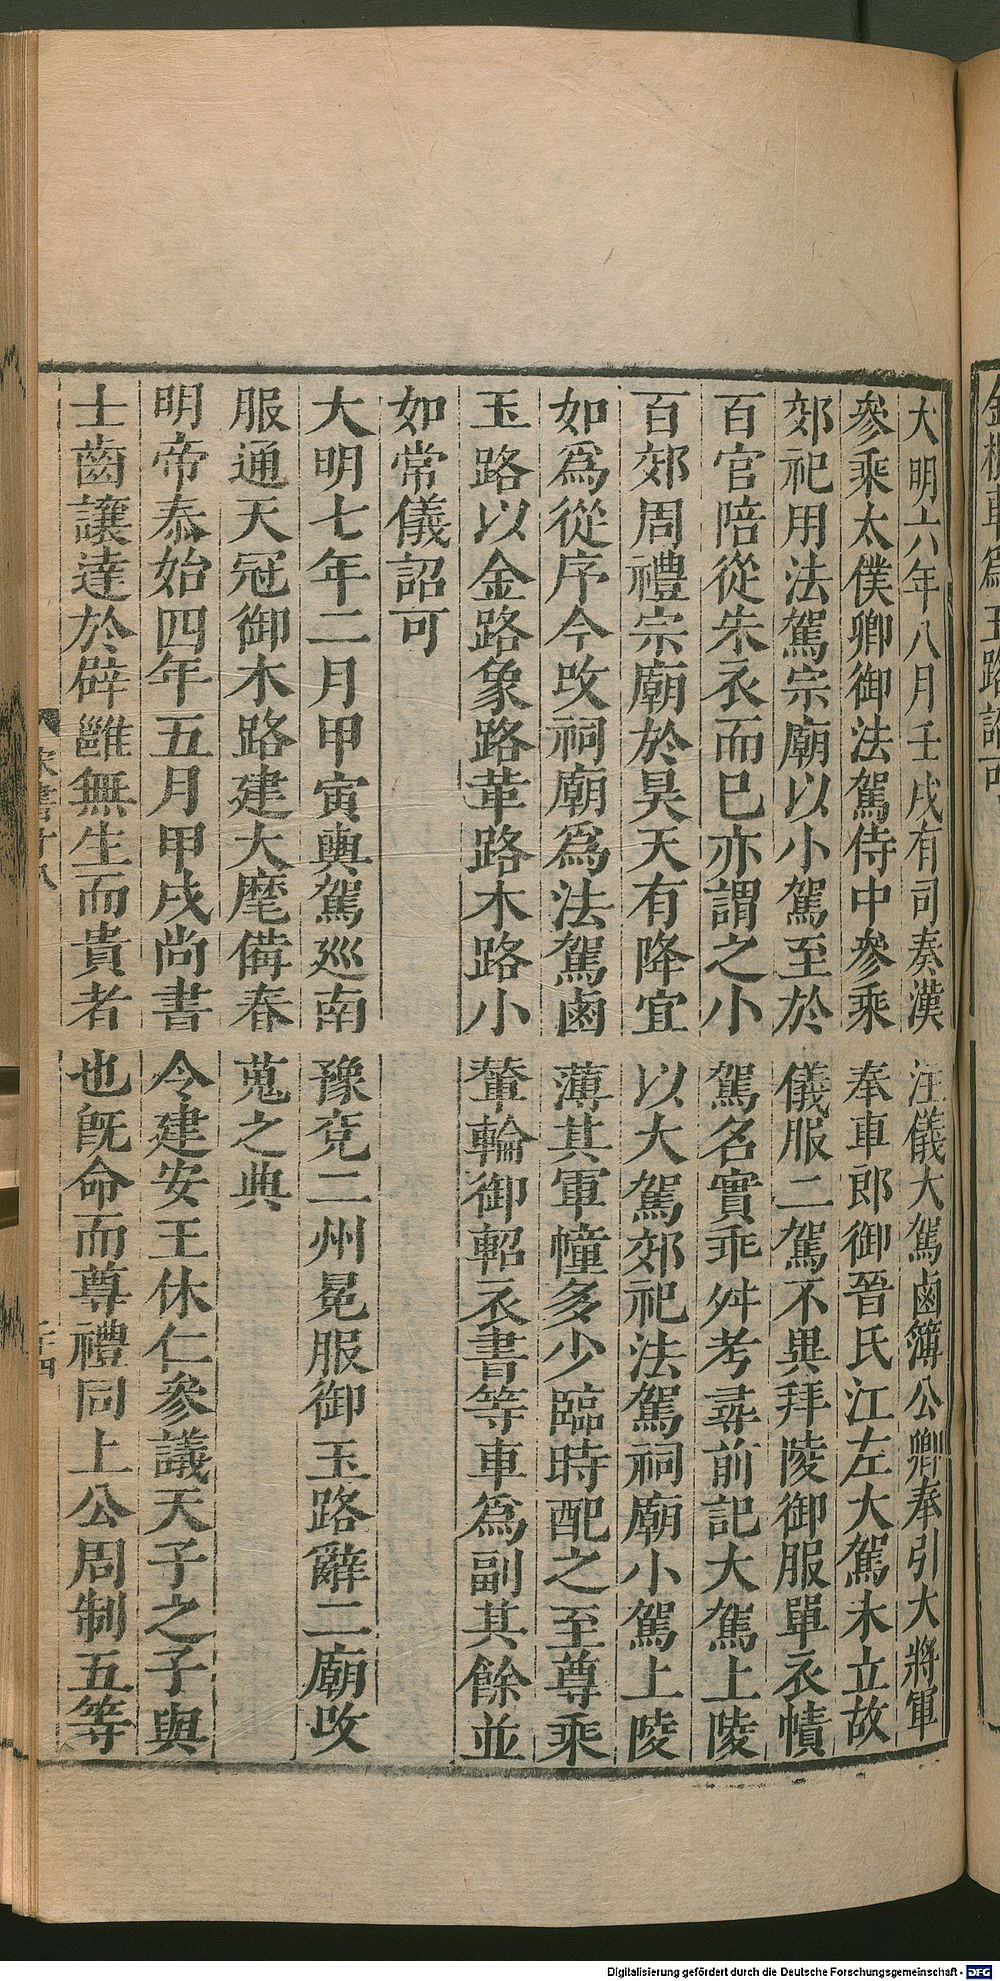 金根車爲玉路詔可
大明六年八月壬戌有司奏漢注儀大駕鹵簿公卿奉引大將軍
參乘太僕卿御法駕侍中參乘奉車郎御晉氏江左大駕未立故
郊祀用法駕宗廟以小駕至於儀服二駕不異拜陵御服單衣幘
百官陪從朱衣而已亦謂之小駕名實乖舛考尋前記大駕上陵
百郊周禮宗廟於昊天有降宜以大駕郊祀法駕祠廟小駕上陵
如爲從序今改祠廟爲法駕鹵薄其軍幢多少臨時配之至尊乘
玉路以金路象路革路木路小輦輪御軺衣書等車爲副其餘並
如常儀詔可
大明七年二月甲寅輿駕巡南豫兗二州冕服御玉路辭二廟改
服通天冠御木路建大麾備春蒐之典
明帝泰始四年五月甲戌尚書令建安王休仁參議天子之子與
士齒讓達於辟雝無生而貴者也旣命而尊禮同上公周制五等
宋書十八
二十四
Digitalisierung gefördert durch die Deutsche Forschungsgemeinschaft - DFG